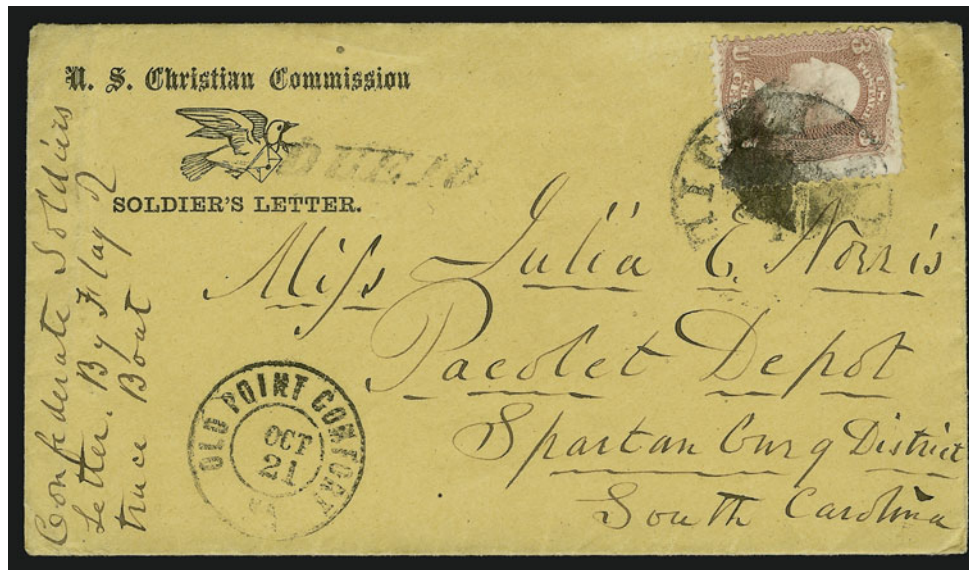 U. S. Christian Commission
SOLDIER'S LETTER.
Confederate Soldiers
Letter. By Flag of
truce Boat
Miss Julia E. Norris
Pacolet Depot
Spartanburg District
South Carolina
OLD POINT COMFORT
OCT
21
VA
DUE 10
U.S. POSTAGE
3